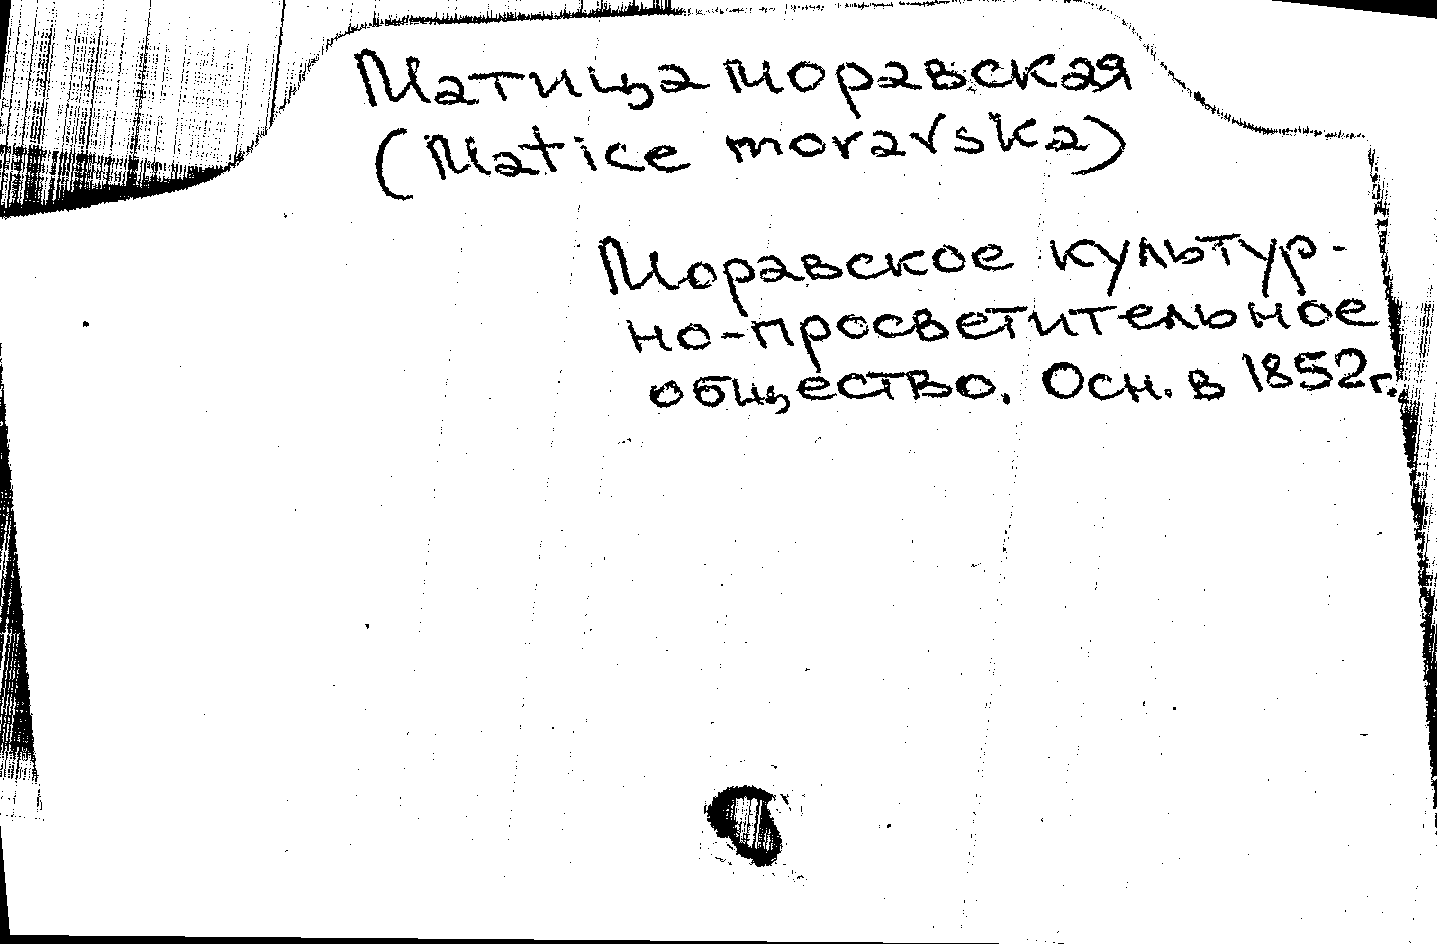 Матица моравская
(Matice moravska)
Моравское культур-
но-просветительное
общество. Осн. в 1852г.